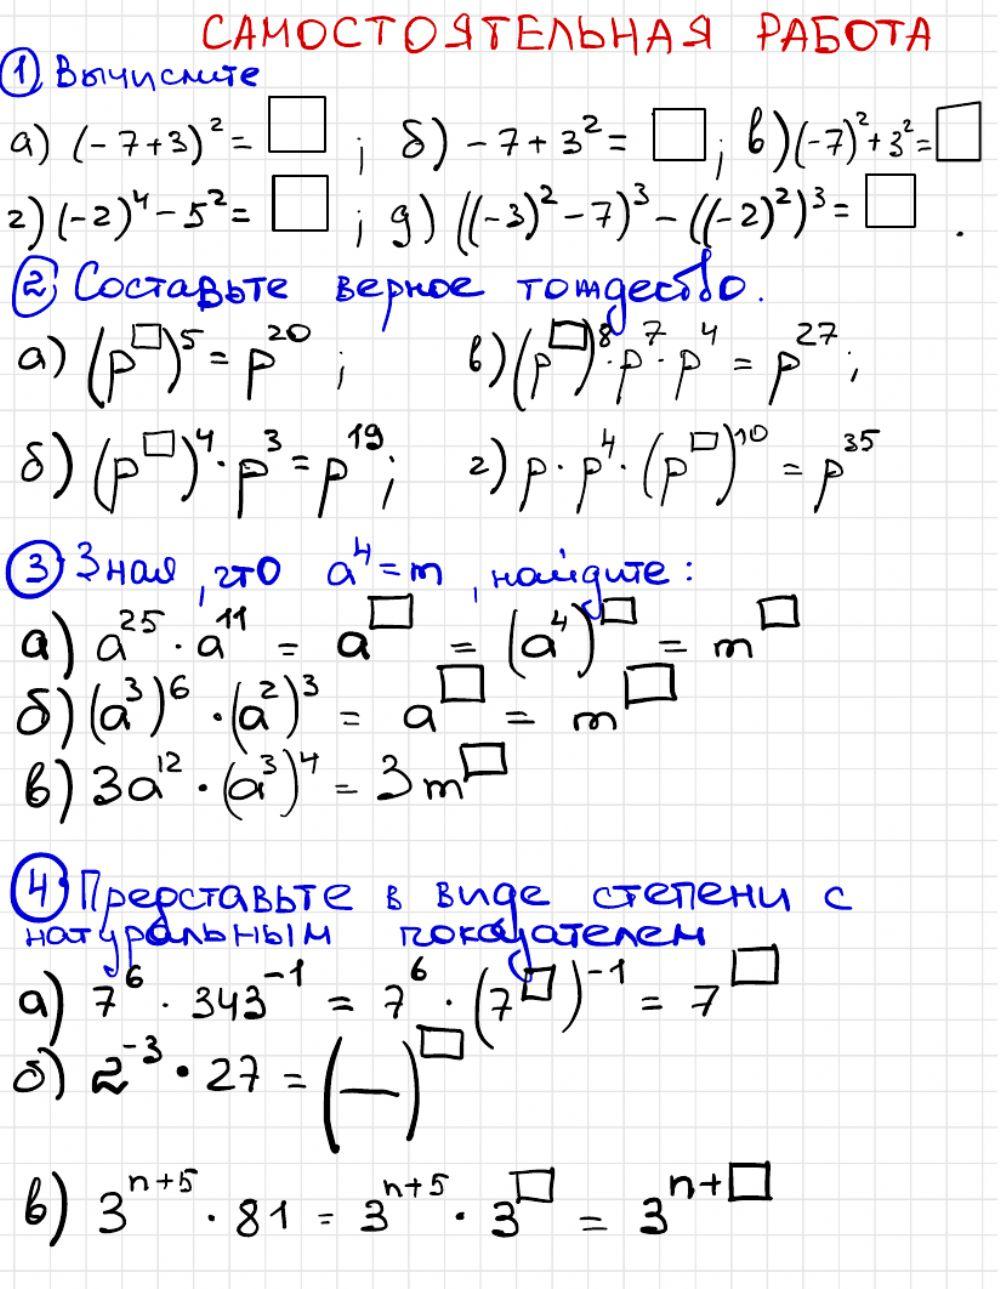 САМОСТОЯТЕЛЬНАЯ РАБОТА
① Вычислите
а) (-7+3)² = □ ; б) -7+3² = □ ; в) (-7)²+3² = □
г) (-2)⁴-5² = □ ; д) ((-3)²-7)³-((-2)²)³ = □ .
② Составьте верное тождество.
а) (p^□)⁵ = p²⁰ ; в) (p^□)⁸·p⁷·p⁴ = p²⁷ ;
б) (p^□)⁴·p³ = p¹⁹ ; г) p·p⁴·(p^□)¹⁰ = p³⁵
③ Зная, что a⁴=m, найдите:
а) a²⁵·a¹¹ = a^□ = (a⁴)^□ = m^□
б) (a³)⁶·(a²)³ = a^□ = m^□
в) 3a¹²·(a³)⁴ = 3m^□
④ Прерставьте в виде степени с
натуральным показателем
а) 7⁶·343⁻¹ = 7⁶·(7^□)⁻¹ = 7^□
б) 2⁻³·27 = (—)^□
в) 3ⁿ⁺⁵·81 = 3ⁿ⁺⁵·3^□ = 3^(n+□)